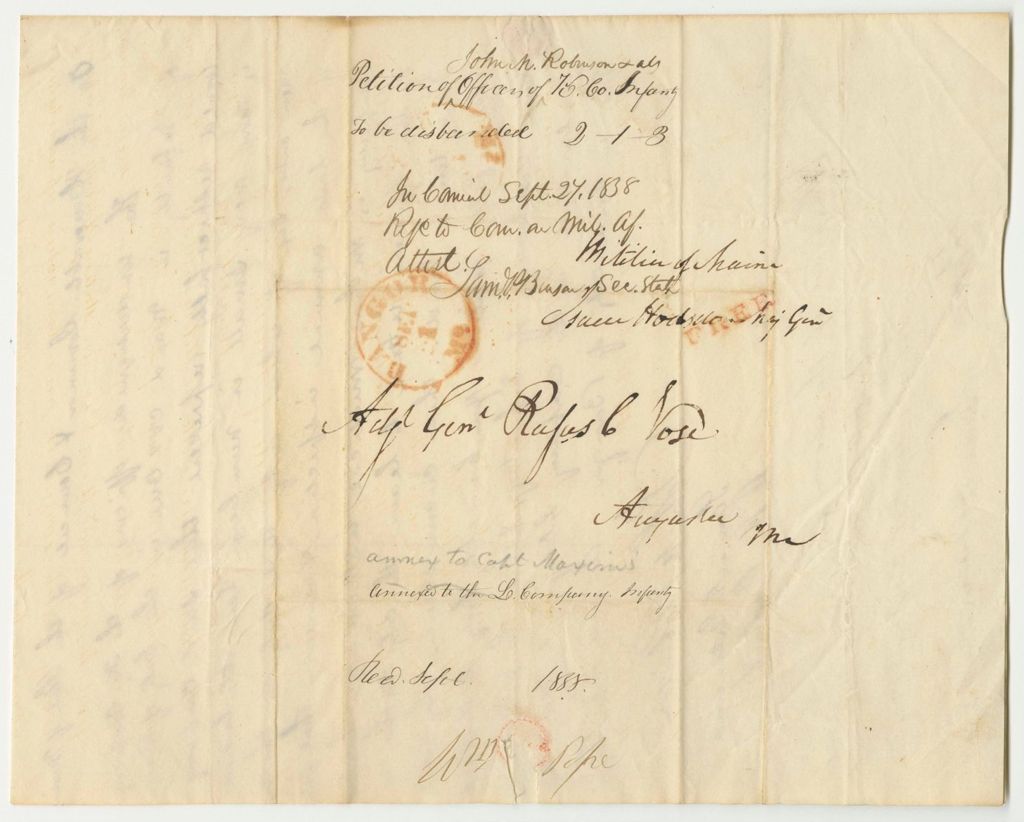 John M. Robinson & als
Petition of Officers of K. Co. Infany
To be disbanded 2-1-3
In Council Sept. 27. 1838
Refd to Com. on Mil. Af.
Attest:
Militia of Maine
Saml P. Benson Sec. State
Isaac Hodsdon Maj Genl
BANGOR Me.
SEP 1
FREE
Adjt Genl Rufus C Vose
Augusta
Me
annex to Capt Maxims
Annexed to the L. Company. Infanty
Recd. Sept. 1838.